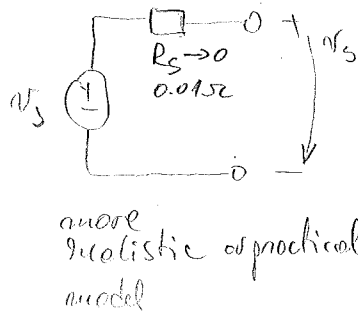 +
v_s
R_s → 0
0.01Ω
v_s
+
−
−
more
realistic or practical
model